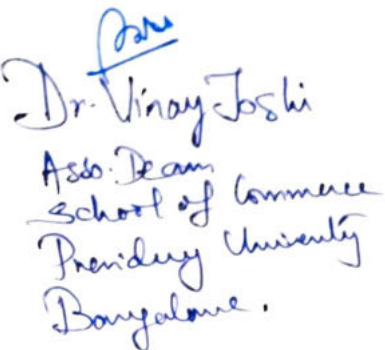 Dr. Vinay Joshi
Asso. Dean
School of Commerce
Presidency University
Bangalore.